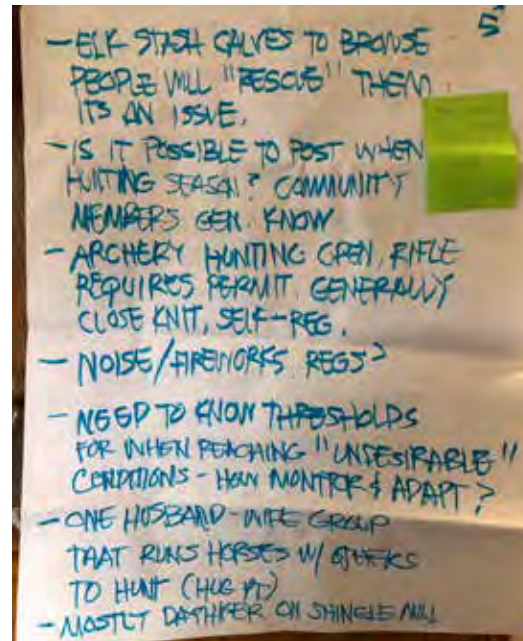 5
- ELK STASH CALVES TO BROWSE
PEOPLE WILL "RESCUE" THEM.
ITS AN ISSUE.
- IS IT POSSIBLE TO POST WHEN
HUNTING SEASON? COMMUNITY
MEMBERS GEN. KNOW
- ARCHERY HUNTING OPEN, RIFLE
REQUIRES PERMIT. GENERALLY
CLOSE KNIT, SELF-REG.
- NOISE/FIREWORKS REGS?
- NEED TO KNOW THRESHOLDS
FOR WHEN REACHING "UNDESIRABLE"
CONDITIONS - HOW MONITOR & ADAPT?
- ONE HUSBAND-WIFE GROUP
THAT RUNS HORSES W/
TO HUNT (HUG PT)
- MOSTLY DAYHIKER ON SHINGLE MILL